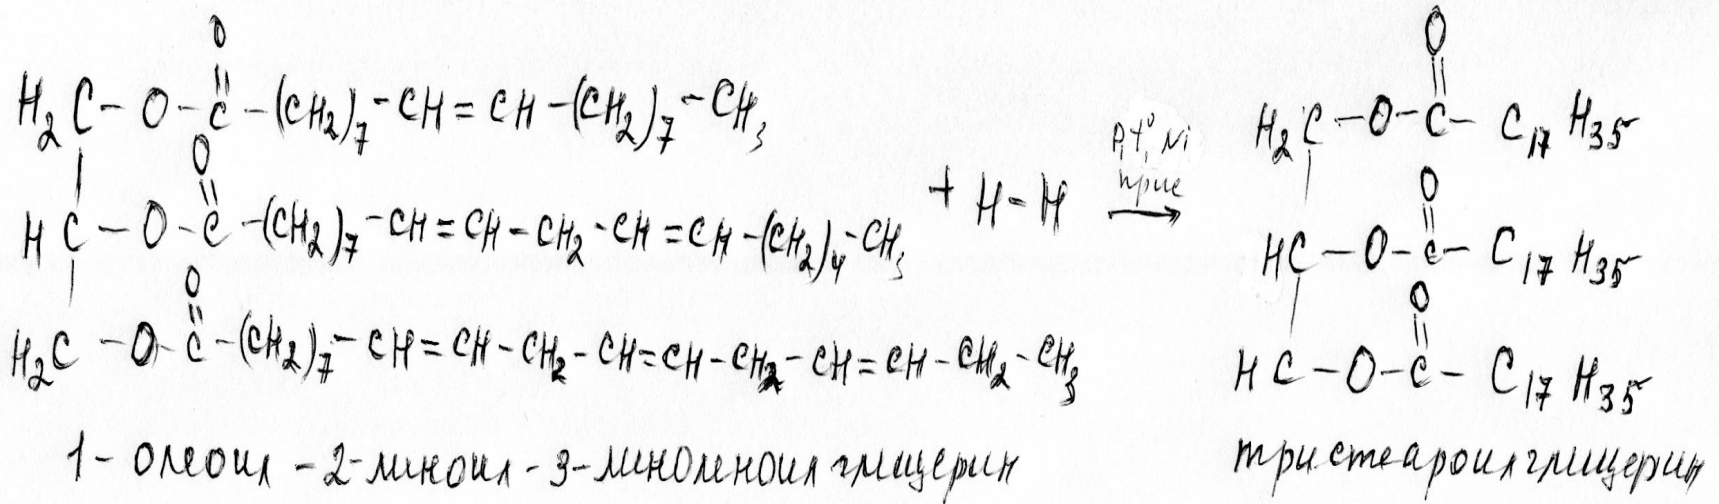 O
||
H2C-O-C-(CH2)7-CH=CH-(CH2)7-CH3
O
||
HC-O-C-(CH2)7-CH=CH-CH2-CH=CH-(CH2)4-CH3
O
||
H2C-O-C-(CH2)7-CH=CH-CH2-CH=CH-CH2-CH=CH-CH2-CH3
1-олеоил-2-линоил-3-линоленоилглицерин
+ H-H
Pt, Ni
→
O
||
H2C-O-C-C17H35
O
||
HC-O-C-C17H35
O
||
HC-O-C-C17H35
тристеароилглицерин